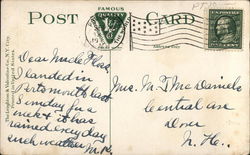 POST CARD
FAMOUS
QUALITY
The Leighton & Valentine Co., N.Y. City.
Dear Uncle
I landed in
Portsmouth last
Sunday for a
week & it has
rained every day
such weather
Mrs. M. J. McDaniels
Central ave
Dover
N. H.